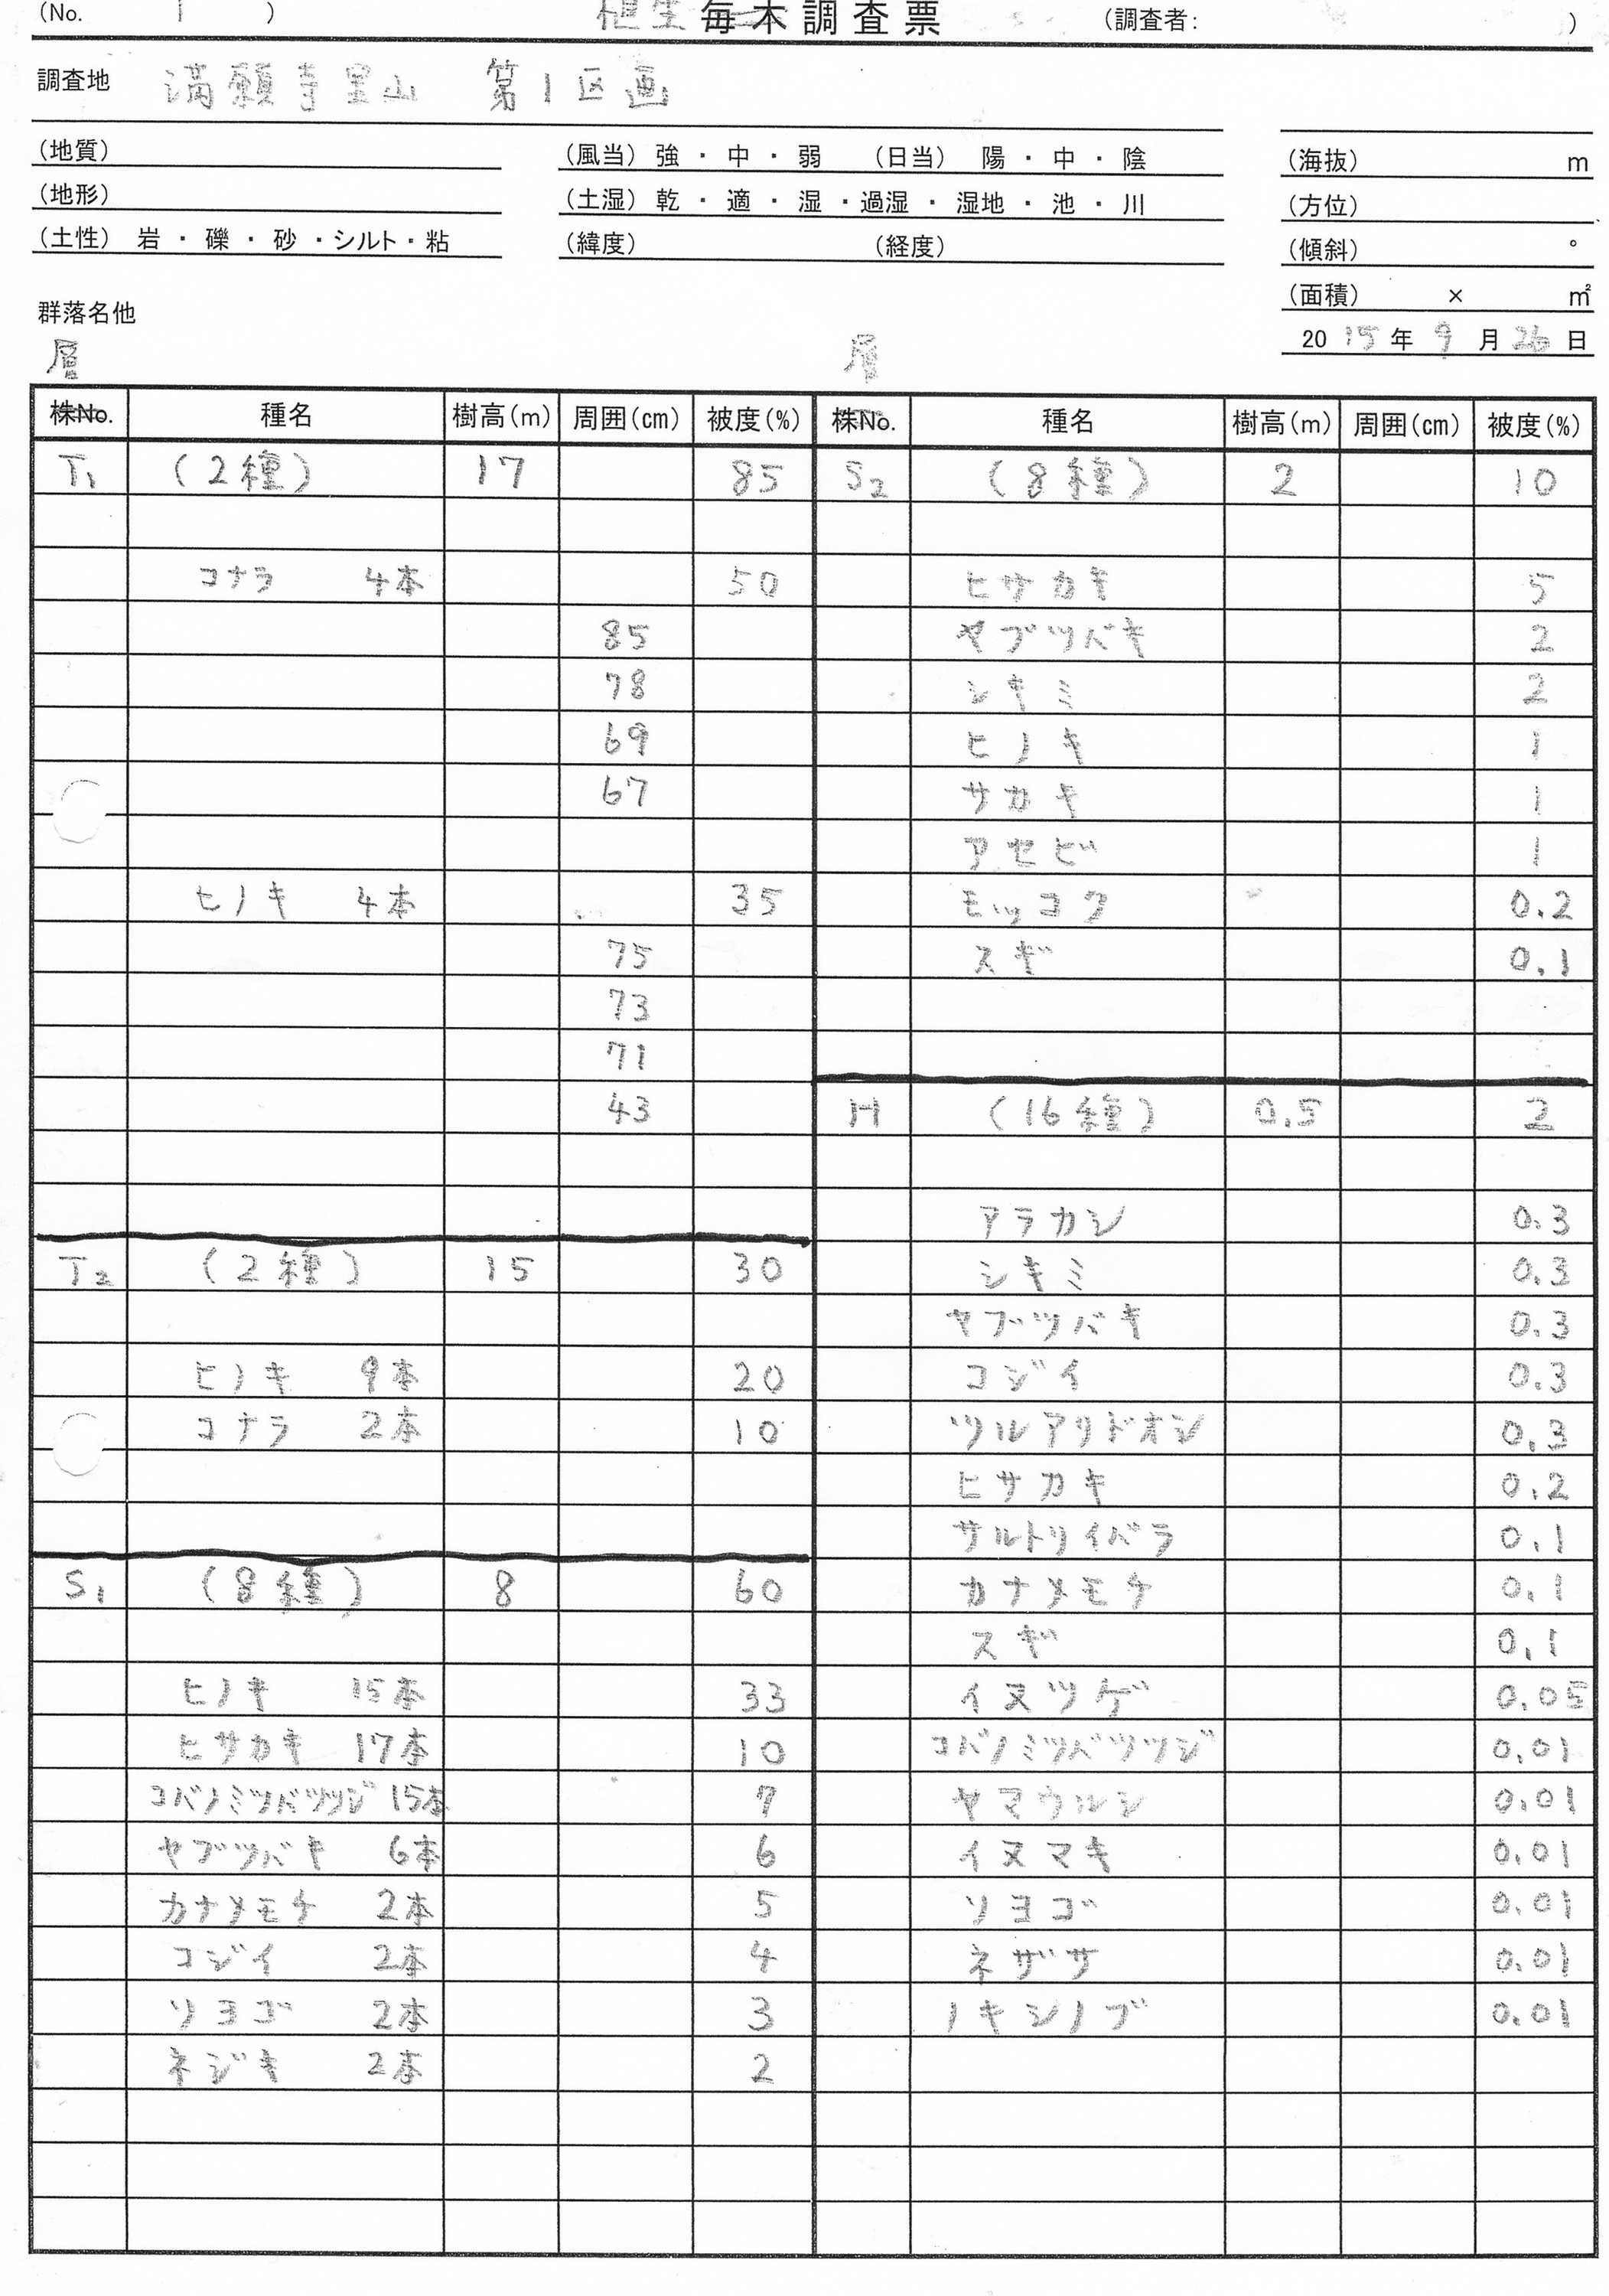 (No. 1 )
植生 毎木調査票
(調査者: )
調査地 満願寺里山 第1区画
(地質)
(風当) 強 ・ 中 ・ 弱 (日当) 陽 ・ 中 ・ 陰
(海抜) m
(地形)
(土湿) 乾 ・ 適 ・ 湿 ・過湿 ・ 湿地 ・ 池 ・ 川
(方位)
(土性) 岩 ・ 礫 ・ 砂 ・シルト・粘
(緯度) (経度)
(傾斜) °
(面積) × ㎡
群落名他
2015年 9月 26日
層
株No. 種名 樹高(m) 周囲(cm) 被度(%)
T1 (2種) 17 85
コナラ 4本 50
85
78
69
67
ヒノキ 4本 35
75
73
71
43
T2 (2種) 15 30
ヒノキ 9本 20
コナラ 2本 10
S1 (8種) 8 60
ヒノキ 15本 33
ヒサカキ 17本 10
コバノミツバツツジ 15本 7
ヤブツバキ 6本 6
カナメモチ 2本 5
コジイ 2本 4
ソヨゴ 2本 3
ネジキ 2本 2
層
株No. 種名 樹高(m) 周囲(cm) 被度(%)
S2 (8種) 2 10
ヒサカキ 5
ヤブツバキ 2
シキミ 2
ヒノキ 1
サカキ 1
アセビ 1
モッコク 0.2
スギ 0.1
H (16種) 0.5 2
アラカシ 0.3
シキミ 0.3
ヤブツバキ 0.3
コジイ 0.3
ツルアリドオシ 0.3
ヒサカキ 0.2
サルトリイバラ 0.1
カナメモチ 0.1
スギ 0.1
イヌツゲ 0.05
コバノミツバツツジ 0.01
ヤマウルシ 0.01
イヌマキ 0.01
ソヨゴ 0.01
ネザサ 0.01
ノキシノブ 0.01